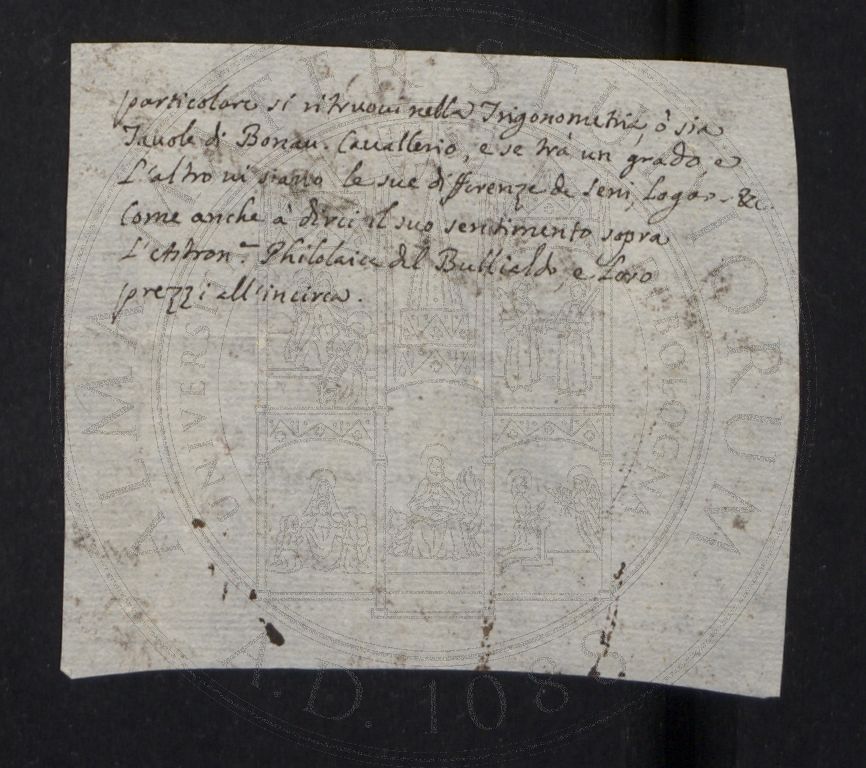 particolare si ritruovi nella Trigonometria, ò sia
Tavole di Bonav. Cavallerio, e se trà un grado, e
L'altro vi siano le sue differenze de Seni, Logar. &c.
Come anche à dirci il suo sentimento sopra
L'Astron.ª Philolaica del Bullialdo, e Loro
prezzi all'incirca.
ALMA MATER STUDIORUM
A.D. 1088